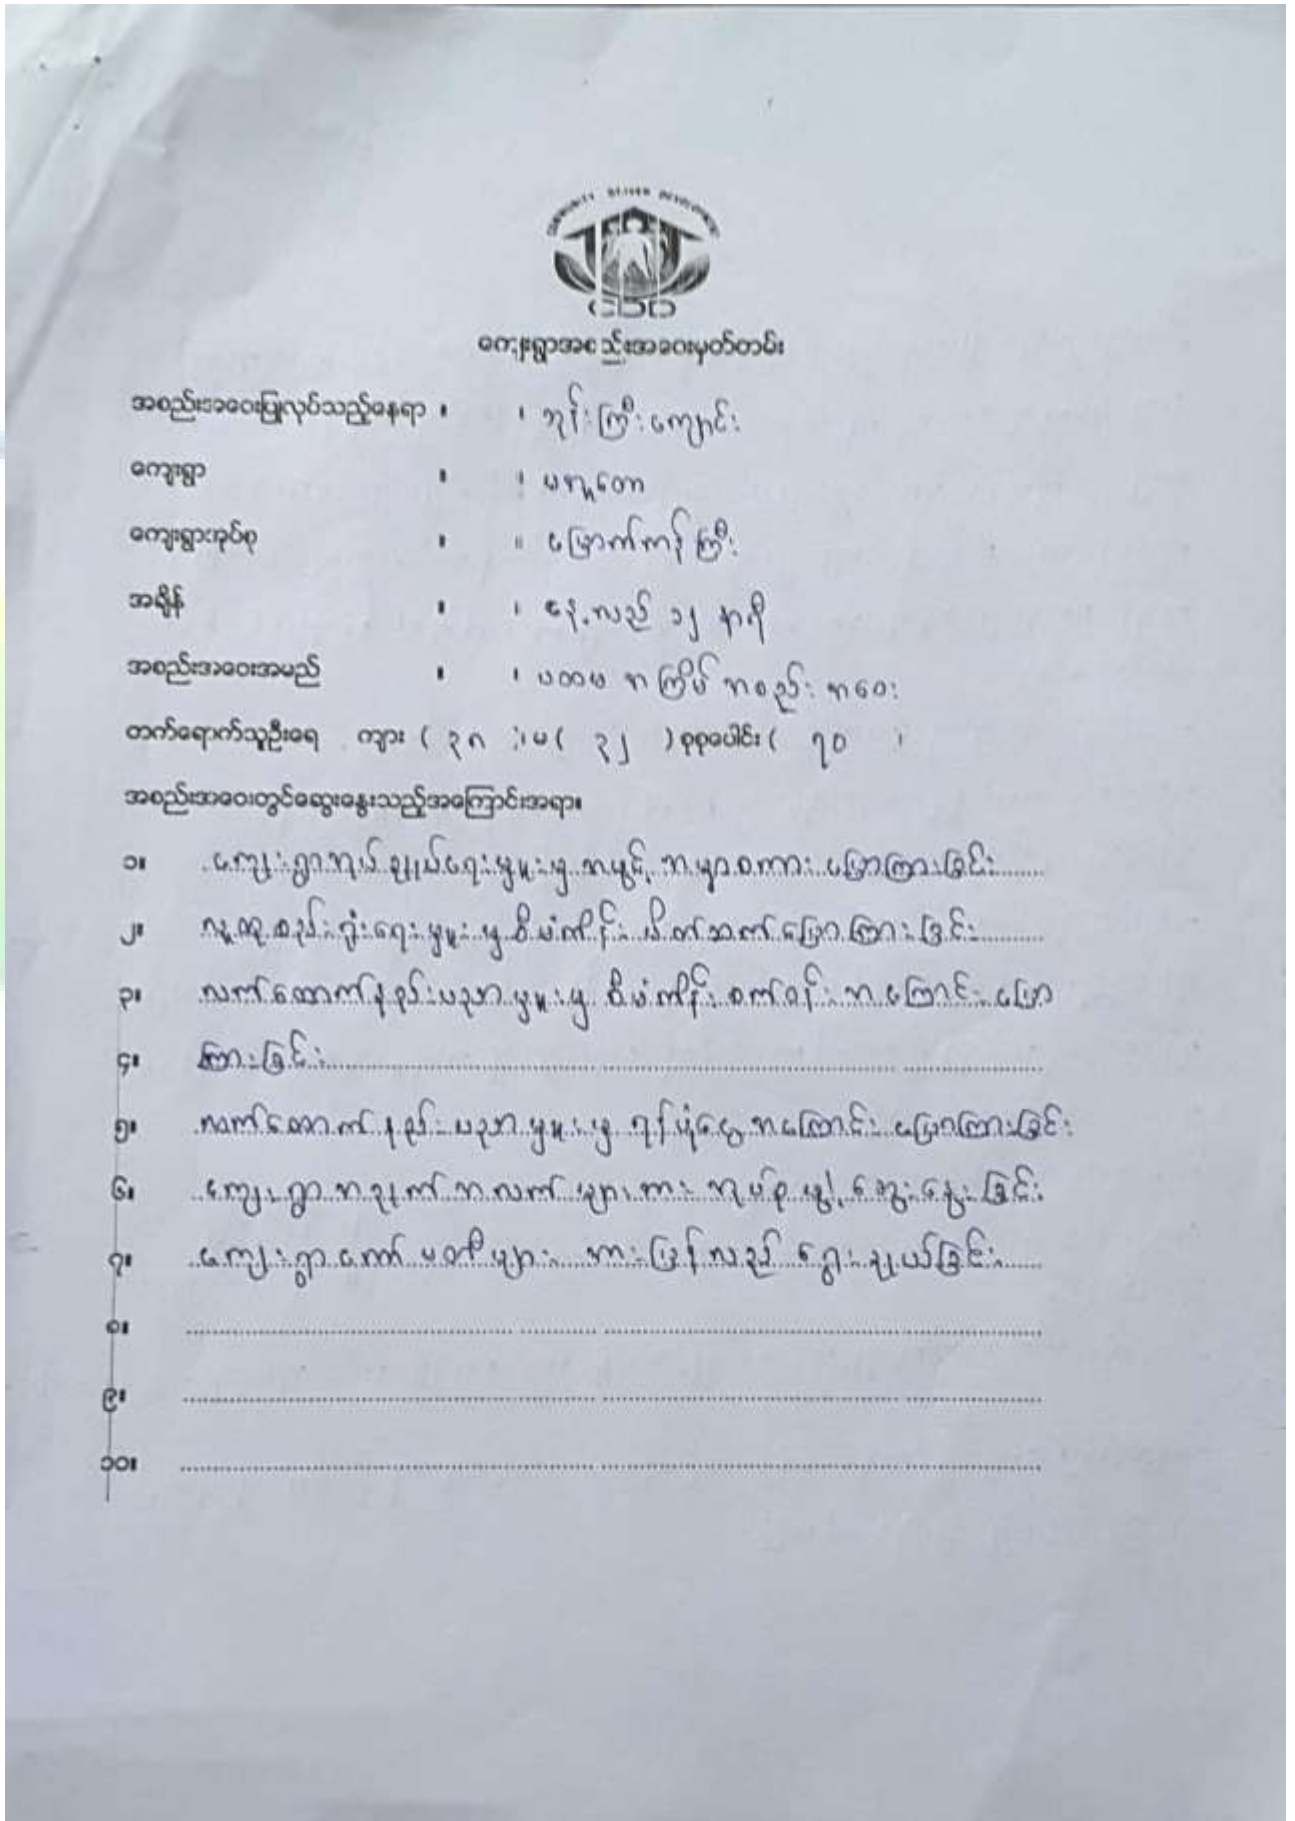 COMMUNITY DRIVEN DEVELOPMENT
CDD
ကျေးရွာအစည်းအဝေးမှတ်တမ်း
အစည်းအဝေးပြုလုပ်သည့်နေရာ ။ ။ ဘုန်းကြီးကျောင်း
ကျေးရွာ ။ ။
ကျေးရွာအုပ်စု ။ ။ မြောက်ကန်ကြီး
အချိန် ။ ။ နေ့လည် ၁၂ နာရီ
အစည်းအဝေးအမည် ။ ။ ပထမ အကြိမ် အစည်းအဝေး
တက်ရောက်သူဦးရေ ကျား ( ၃၈ )၊မ( ၃၂ )စုစုပေါင်း ( ၇၀ )
အစည်းအဝေးတွင်ဆွေးနွေးသည့်အကြောင်းအရာ။
၁။ ကျေးရွာအုပ်ချုပ်ရေးမှူးမှ အဖွင့် အမှာစကား ပြောကြားခြင်း
၂။ လူထုစည်းရုံးရေးမှူးမှ စီမံကိန်း မိတ်ဆက်ပြောကြားခြင်း
၃။ လက်ထောက်နည်းပညာမှူးမှ စီမံကိန်း စက်ဝန်း အကြောင်း ပြော
၄။ ကြားခြင်း
၅။ လက်ထောက်နည်းပညာမှူးမှ ရန်ပုံငွေ အကြောင်း ပြောကြားခြင်း
၆။ ကျေးရွာအချက်အလက်များအား အုပ်စုဖွဲ့ ဆွေးနွေးခြင်း
၇။ ကျေးရွာကော်မတီများအား ပြန်လည် ရွေးချယ်ခြင်း
၈။
၉။
၁၀။